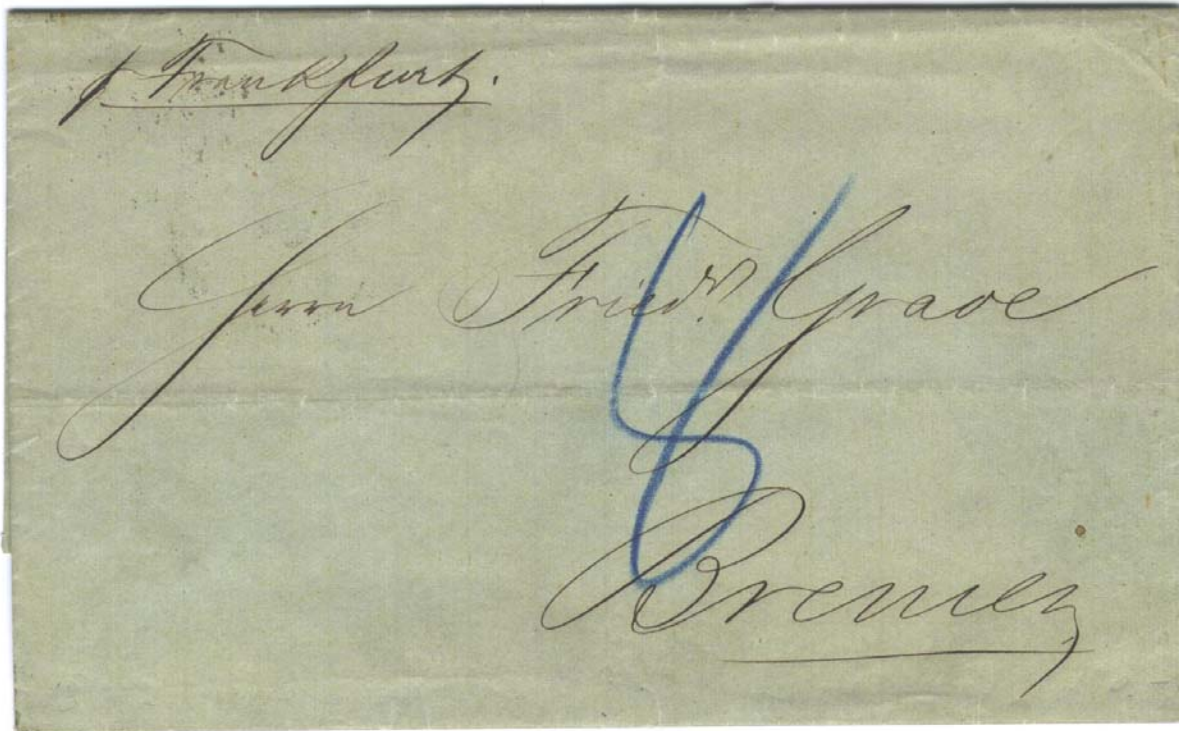 p Frankfurt.
Herrn Friedr. Grave
Bremen